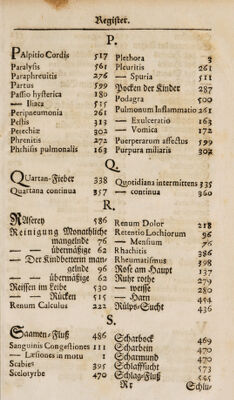 Register.
P.
PAlpitio Cordis 517
Paralysis 561
Paraphrenitis 276
Partus 599
Passio hysterica 180
— Iliaca 515
Peripneumonia 261
Pestis 313
Petechiæ 302
Phrenitis 272
Phthisis pulmonalis 163
Plethora 3
Pleuritis 261
— Spuria 511
Pocken der Kinder 287
Podagra 500
Pulmonum Inflammatio 261
— Exulceratio 163
— Vomica 172
Puerperarum affectus 599
Purpura miliaris 302
Q.
QUartan-Fieber 338
Quartana continua 357
Quotidiana intermittens 335
— continua 360
R.
RAserey 586
Reinigung Monathliche
mangelnde 76
— — übermäßige 62
— Der Kindbetterin man-
gelnde 96
— — übermäßige 62
Reissen im Leibe 530
— — Rücken 515
Renum Calculus 222
Renum Dolor 218
Retentio Lochiorum 96
— Mensium 76
Rhachitis 386
Rheumatismus 598
Rose am Haupt 137
Ruhr rothe 279
— weisse 280
— Harn 494
Rülps-Sucht 436
S.
SAamen-Fluß 486
Sanguinis Congestiones 111
— Læsiones in motu 1
Scabies 395
Scelotyrbe 470
Scharbock 469
Scharbein 470
Scharmund 470
Schlaffsucht 573
Schlag-Fluß 545
Rr
Schlu-